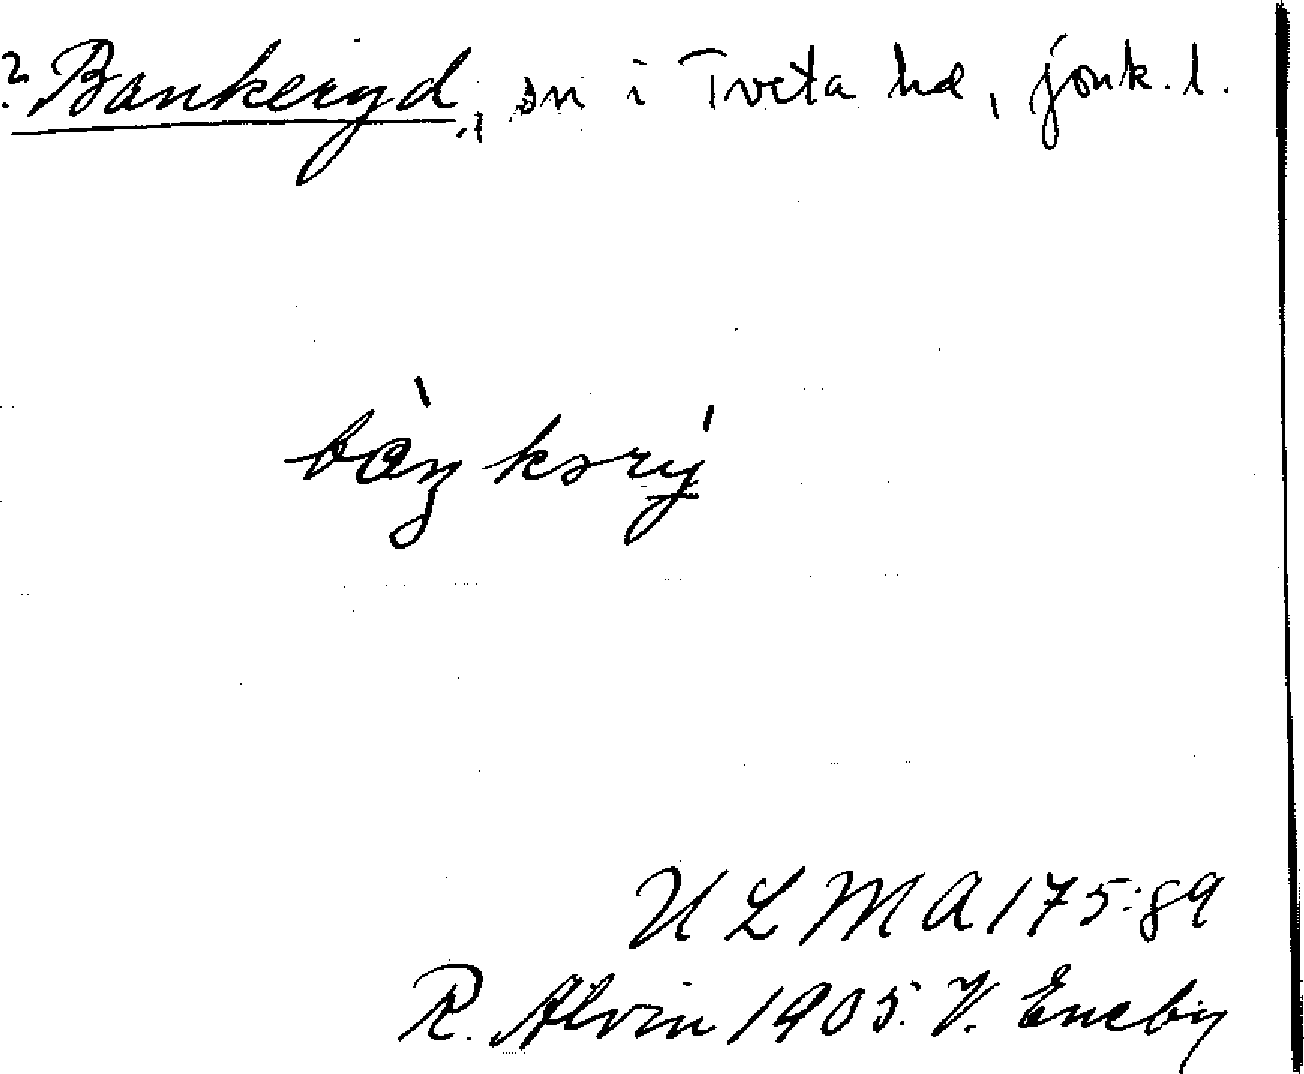 ? Bankeryd, sn i Tveta hd, Jönk. l.
bàŋkərý
ULMA 175:89
R. Alvin 1905. V. Eneby